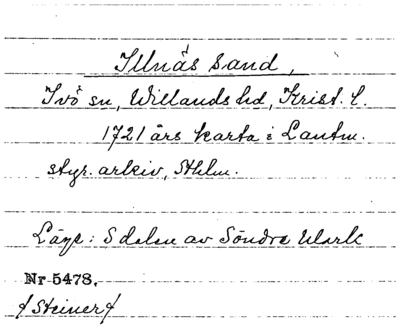 Illnäs sand,
Ivö sn, Willands hd, Krist. l.
1721 års karta i Lantm.
styr. arkiv, Sthlm.
Läge: S delen av Söndre Mark
Nr 5478.
/Steiner/